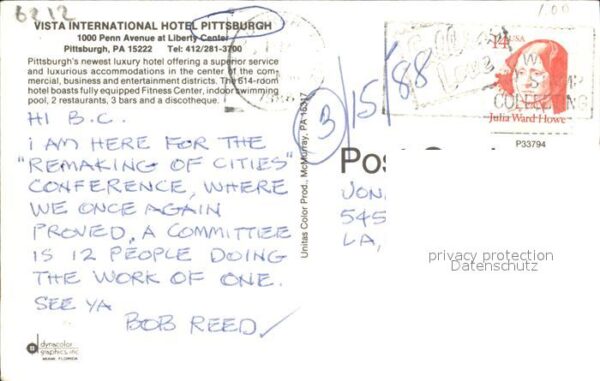 6212
1.00
VISTA INTERNATIONAL HOTEL PITTSBURGH
1000 Penn Avenue at Liberty Center
Pittsburgh, PA 15222 Tel: 412/281-3700
Pittsburgh's newest luxury hotel offering a superior service
and luxurious accommodations in the center of the com-
mercial, business and entertainment districts. The 614-room
hotel boasts fully equipped Fitness Center, indoor swimming
pool, 2 restaurants, 3 bars and a discotheque.
HI B.C.
I AM HERE FOR THE
"REMAKING OF CITIES"
CONFERENCE, WHERE
WE ONCE AGAIN
PROVED, A COMMITTEE
IS 12 PEOPLE DOING
THE WORK OF ONE.
SEE YA
BOB REED
dynacolor
graphics inc.
MIAMI, FLORIDA
Unitas Color Prod., McMurray, PA 15317
3/15/88
14 USA
COLLECTING
Julia Ward Howe
P33794
Pos
JON
545
LA,
privacy protection
Datenschutz